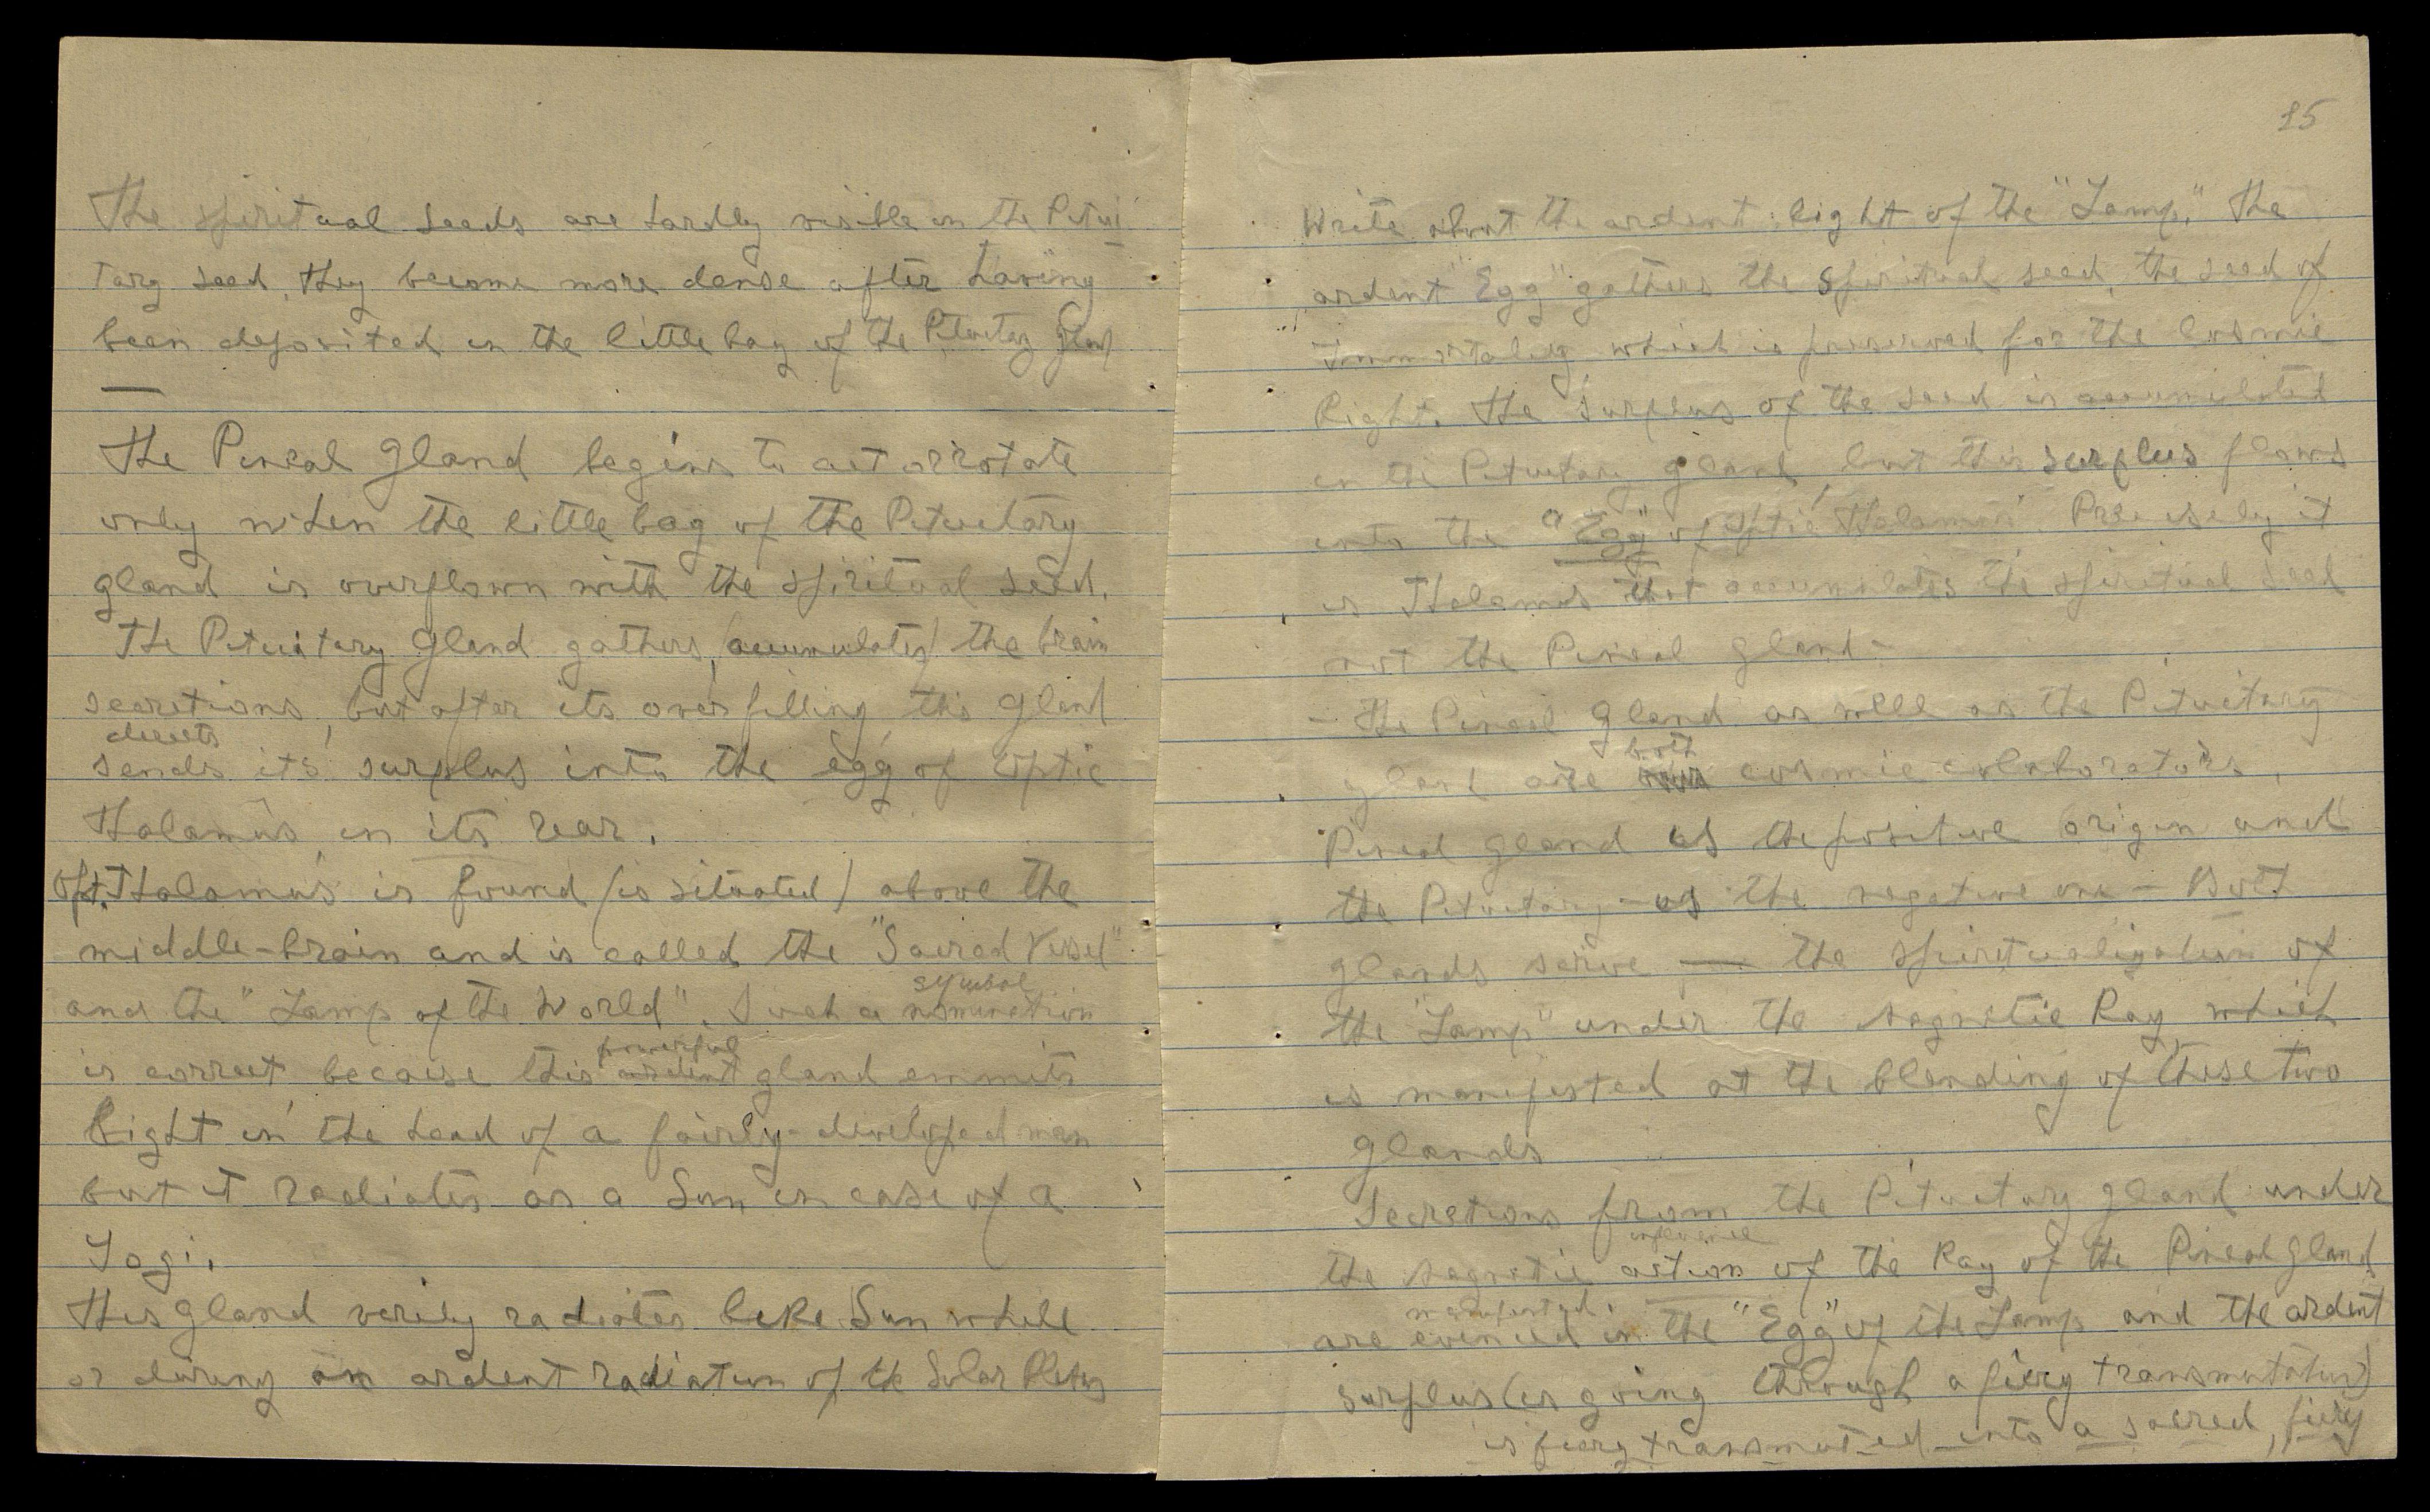 The spiritual seeds are hardly visible in the Petui-
tary seed, they become more dense after having
been deposited in the little bag of the Petuitary gland
—
The Pineal Gland begins to act or rotate
only when the little bag of the Petuitary
gland is overflown with the spiritual seed.
The Petuitary Gland gathers /accumulates/ the brain
secretions, but after its overfilling this gland
directs
sends its surplus into the egg of Optic
Thalamus, in its rear.
Opt. Thalamus is found /is situated/ above the
middle-brain and is called the "Sacred Vessel"
and the "Lamp of the World". Such a nomination
symbol
is correct, because this ardent gland emmits
powerful
light in the head of a fairly-developed man
but it radiates as a Sun in case of a
Yogi.
This gland verily radiates like Sun while
or during an ardent radiation of the Solar Plexus
15
Write about the ardent light of the "Lamp." The
ardent "Egg" gathers the spiritual seed, the seed of
Immortality which is preserved for the Cosmic
Right. The surplus of the seed is accumulated
in the Petuetary gland, but this surplus flows
into the "Egg" of Optic Thalamus. Precisely it
is Thalamus that accumulates the spiritual seed
not the Pineal gland -
- The Pineal Gland as well as the Pituitary
both
gland are cosmic collaborators.
Pineal gland as the positive origin and
the Petuetary - as the negative one - Both
glands serve — the spiritualization of
the "Lamp" under the magnetic Ray, which
is manifested at the blending of these two
glands
Secretions from the Pituetary gland under
influence
the magnetic action of the Ray of the Pineal Gland
manifested
are evinced in the "Egg" of the Lamp and the ardent
surplus (is going through a fiery transmutation)
is fiery transmuted into a sacred, fiery